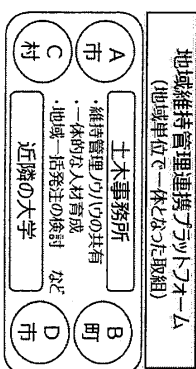 地域維持管理連携プラットフォーム
(地域単位で一体となった取組)
A市
土木事務所
B町
・維持管理ノウハウの共有
・一体的な人材育成
・地域一括発注の検討 など
C村
近隣の大学
D市